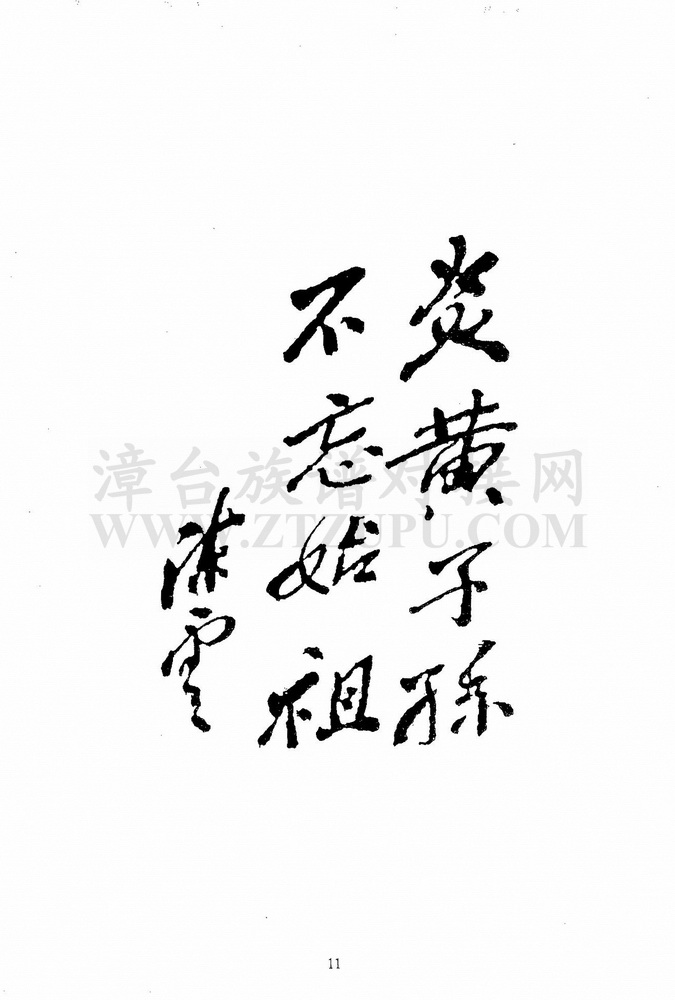 炎黄子孫
不忘始祖
陳雲
漳台族谱对接网
WWW.ZTZUPU.COM
11